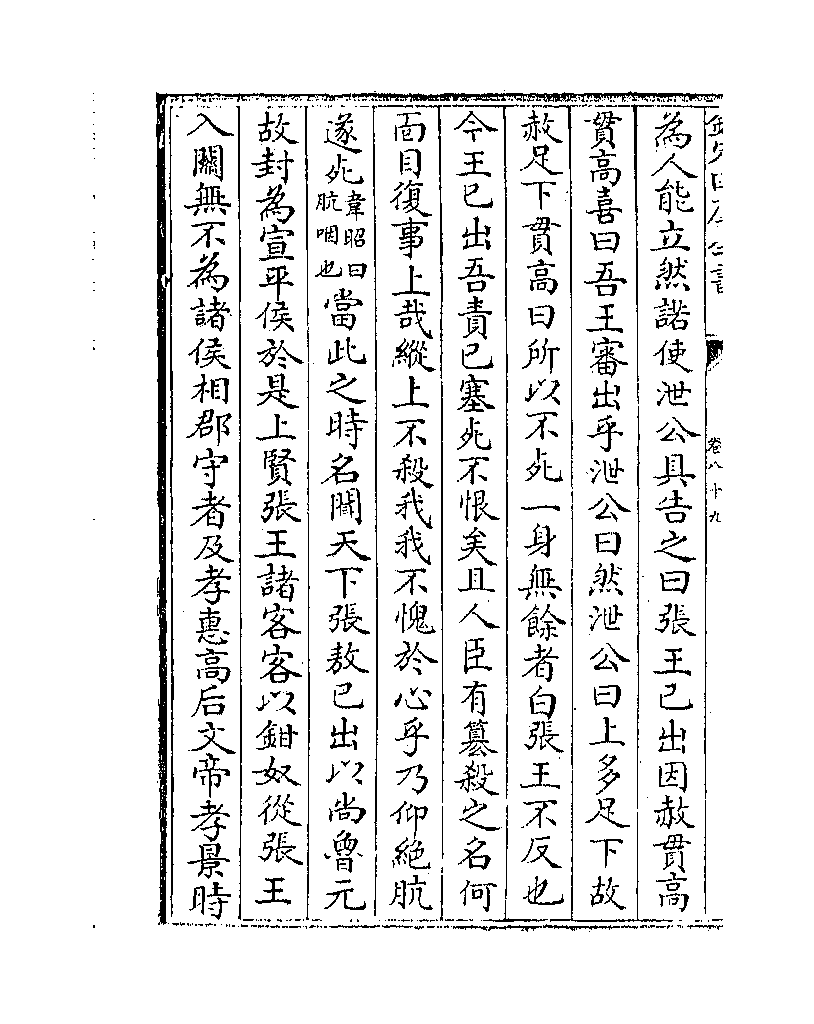 為人能立然諾使泄公具告之曰張王已出因赦貫高
貫高喜曰吾王審出乎泄公曰然泄公曰上多足下故
赦足下貫高曰所以不死一身無餘者白張王不反也
今王已出吾責已塞死不恨矣且人臣有簒殺之名何
面目復事上哉縱上不殺我我不愧於心乎乃仰絶肮
遂死韋昭曰肮咽也當此之時名聞天下張敖已出以尚魯元
故封為宣平侯於是上賢張王諸客客以鉗奴從張王
入關無不為諸侯相郡守者及孝惠高后文帝孝景時
卷八十九